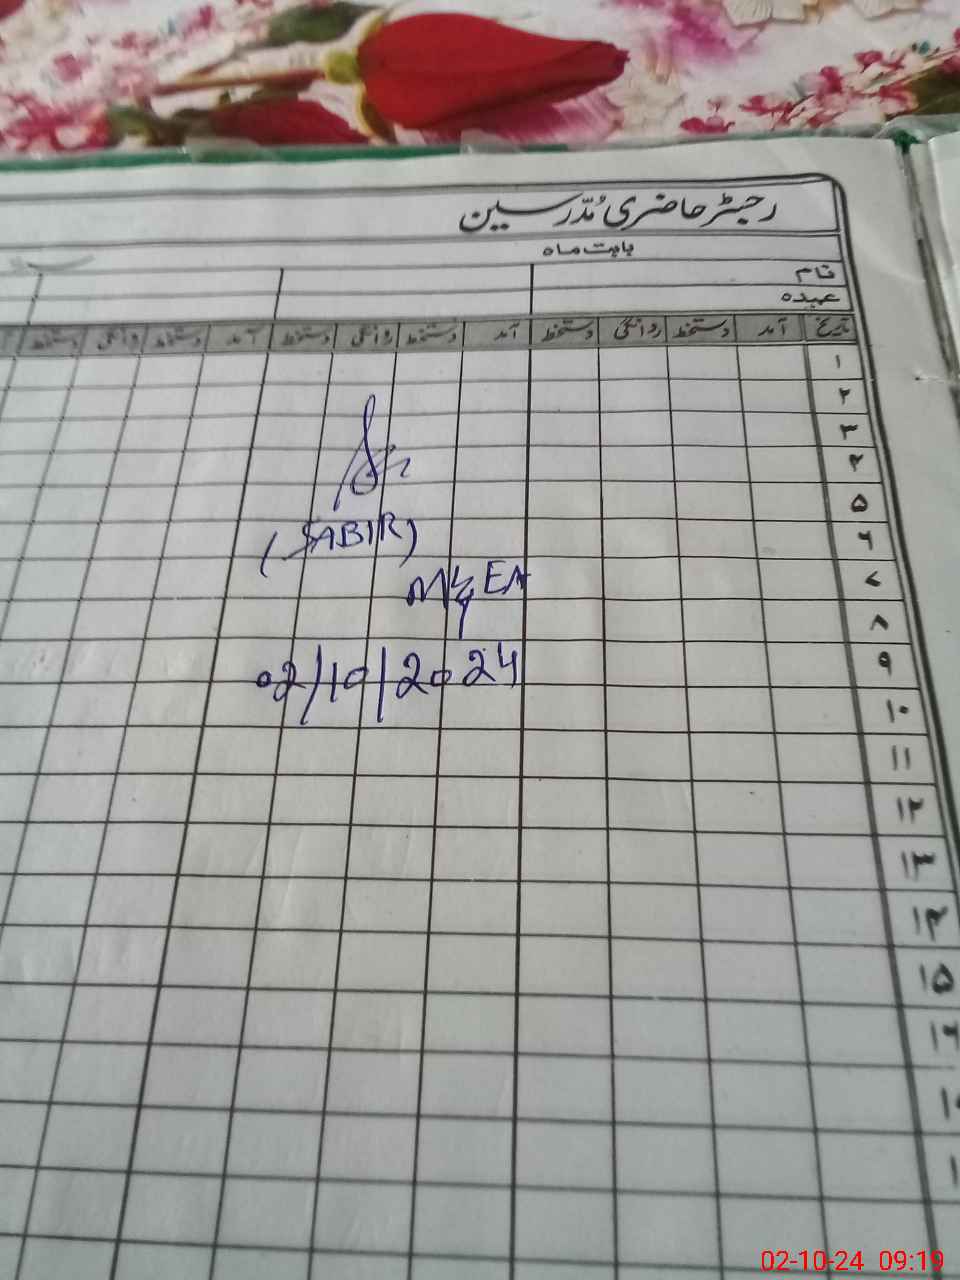 رجسٹر حاضری مُدّرسین
بابت ماہ
نام
عہدہ
تاریخ آمد دستخط روانگی دستخط آمد دستخط روانگی دستخط آمد دستخط روانگی دستخط
۱
۲
۳
۴
۵
۶
۷
۸
۹
۱۰
۱۱
۱۲
۱۳
۱۴
۱۵
۱۶
(SABIR)
02/10/2024
02-10-24 09:19